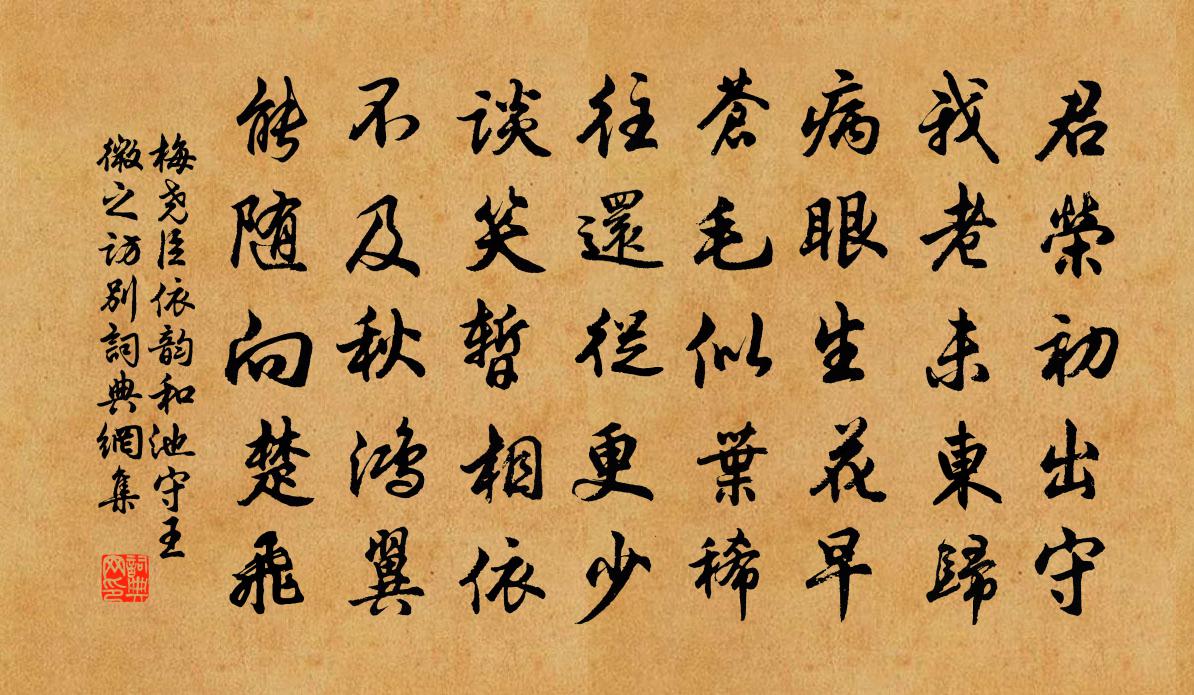 君榮初出守
我老未東歸
病眼生花早
蒼毛似葉稀
往還從更少
談笑暫相依
不及秋鴻翼
能随向楚飛
梅堯臣依韵和池守王
微之访别詞典網集
詞典网印